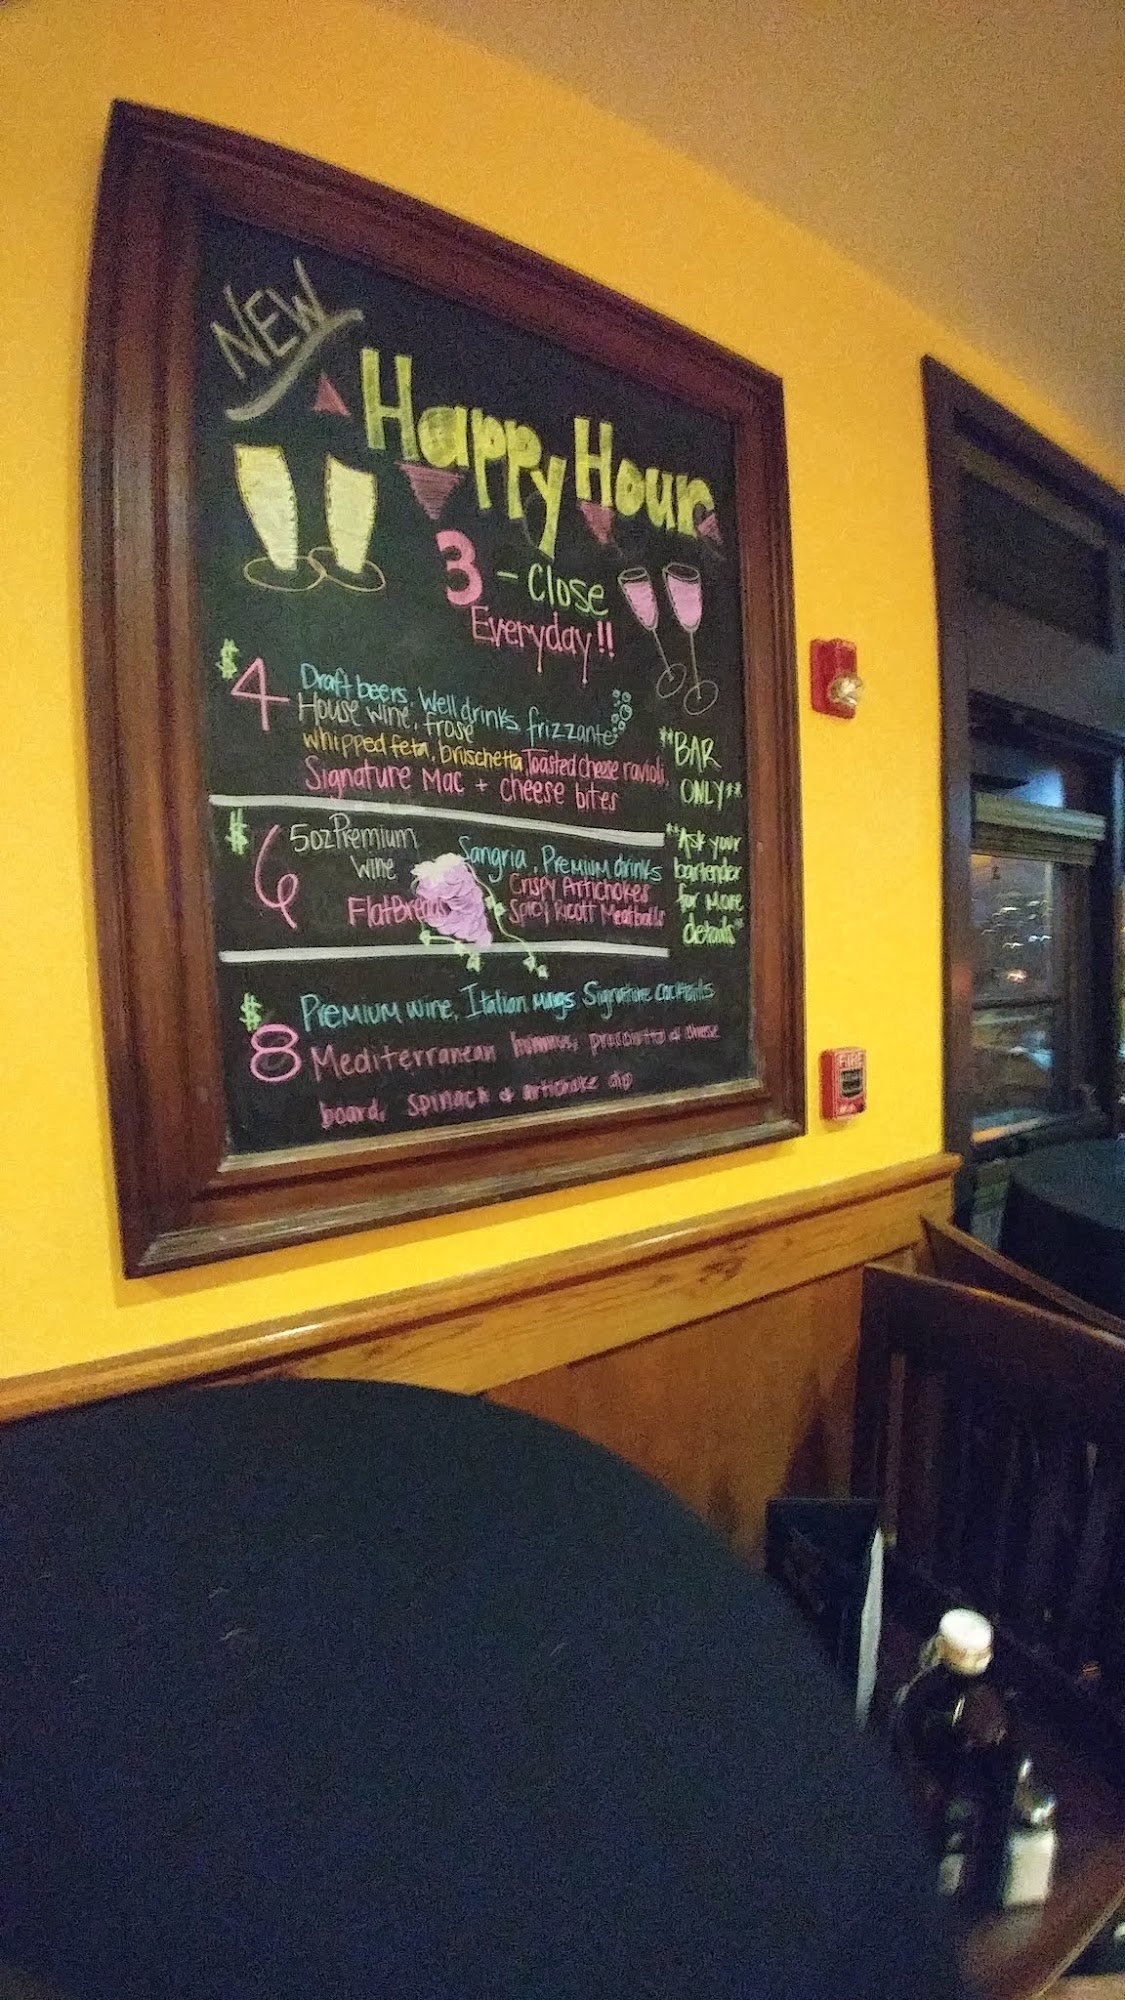 NEW
Happy Hour
3 - Close
Everyday!!
$4
Draft beers, Well drinks, frizzante
House wine, frosé
whipped feta, bruschetta, Toasted cheese ravioli,
Signature Mac + cheese bites
**BAR
ONLY**
$6
5oz Premium
Wine
FlatBreads
Sangria, Premium drinks
Crispy Artichokes
Spicy Ricott Meatballs
**Ask your
bartender
for More
details**
$8
Premium wine, Italian mugs, Signature cocktails
Mediterranean hummus, prosciutto & cheese
board, spinach & artichoke dip
FIRE